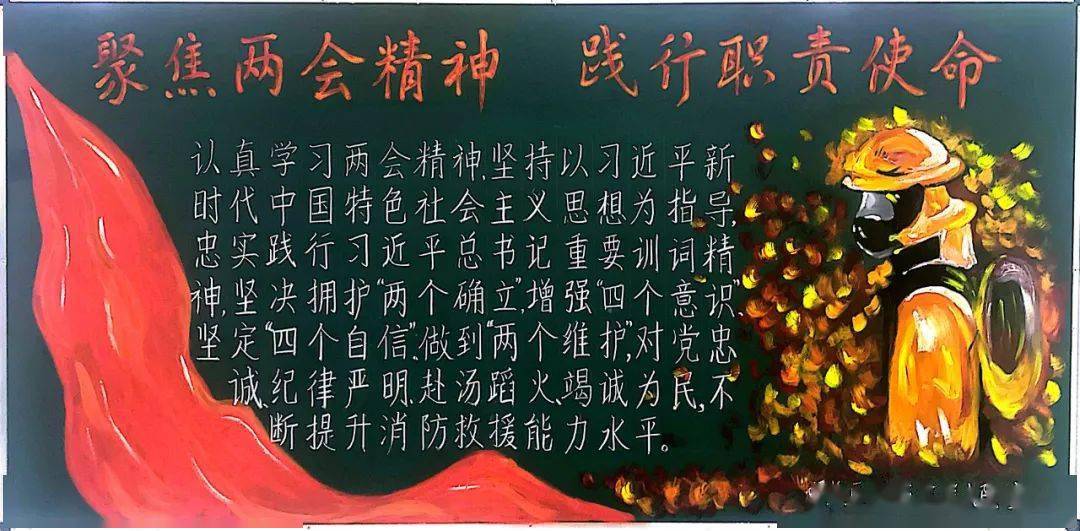 聚焦两会精神 践行职责使命
认真学习两会精神,坚持以习近平新
时代中国特色社会主义思想为指导,
忠实践行习近平总书记重要训词精
神,坚决拥护“两个确立”,增强“四个意识”、
坚定“四个自信”、做到“两个维护”,对党忠
诚、纪律严明、赴汤蹈火、竭诚为民,不
断提升消防救援能力水平。